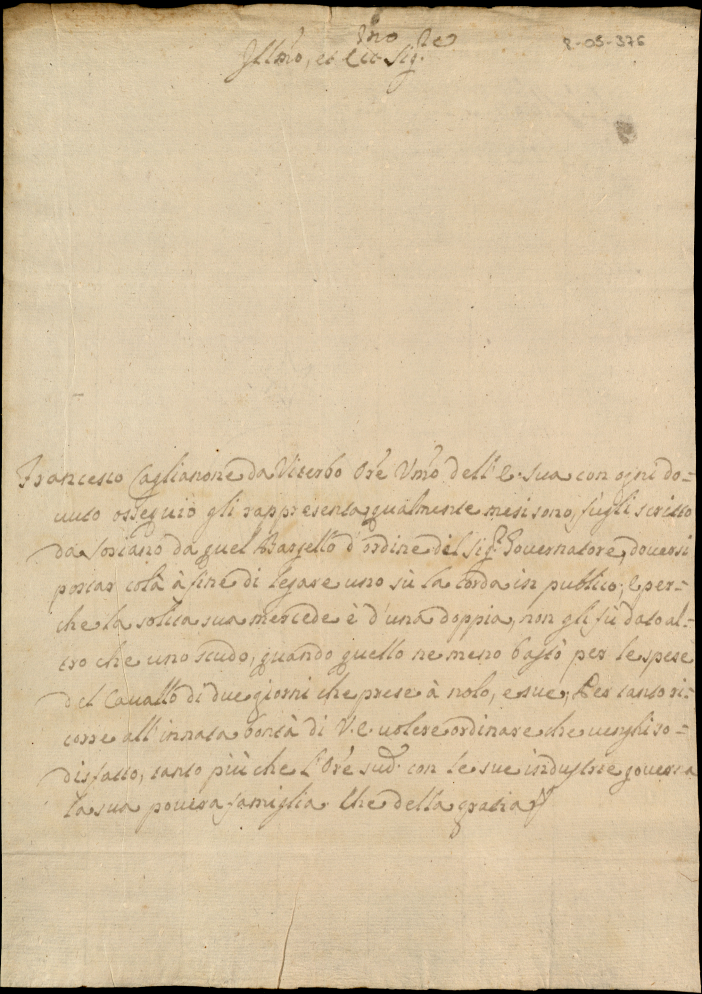 Ill.mo, et Ecc.mo Sig.re
R-05-376
Francesco Caglianone da Viterbo Ore Vmo dell'E. Sua con ogni do=
vuto ossequio gli rappresenta, qualmente mesi sono, fugli scritto
da Soriano da quel Bargello d'ordine del Sig.r Governatore, doversi
portar colà à fine di legare uno sù la corda in publico; e per=
che la solita sua mercede è d'una doppia, non gli fù dato al=
tro che uno scudo, quando quello ne meno bastò per le spese
del Cavallo di due giorni che prese à nolo, e sue; Per tanto ri=
corre all'innata bontà di V.E. volere ordinare che venghi so=
disfatto, tanto più che l'Ore sud.o con le sue industrie governa
la sua povera famiglia. Che della gratia